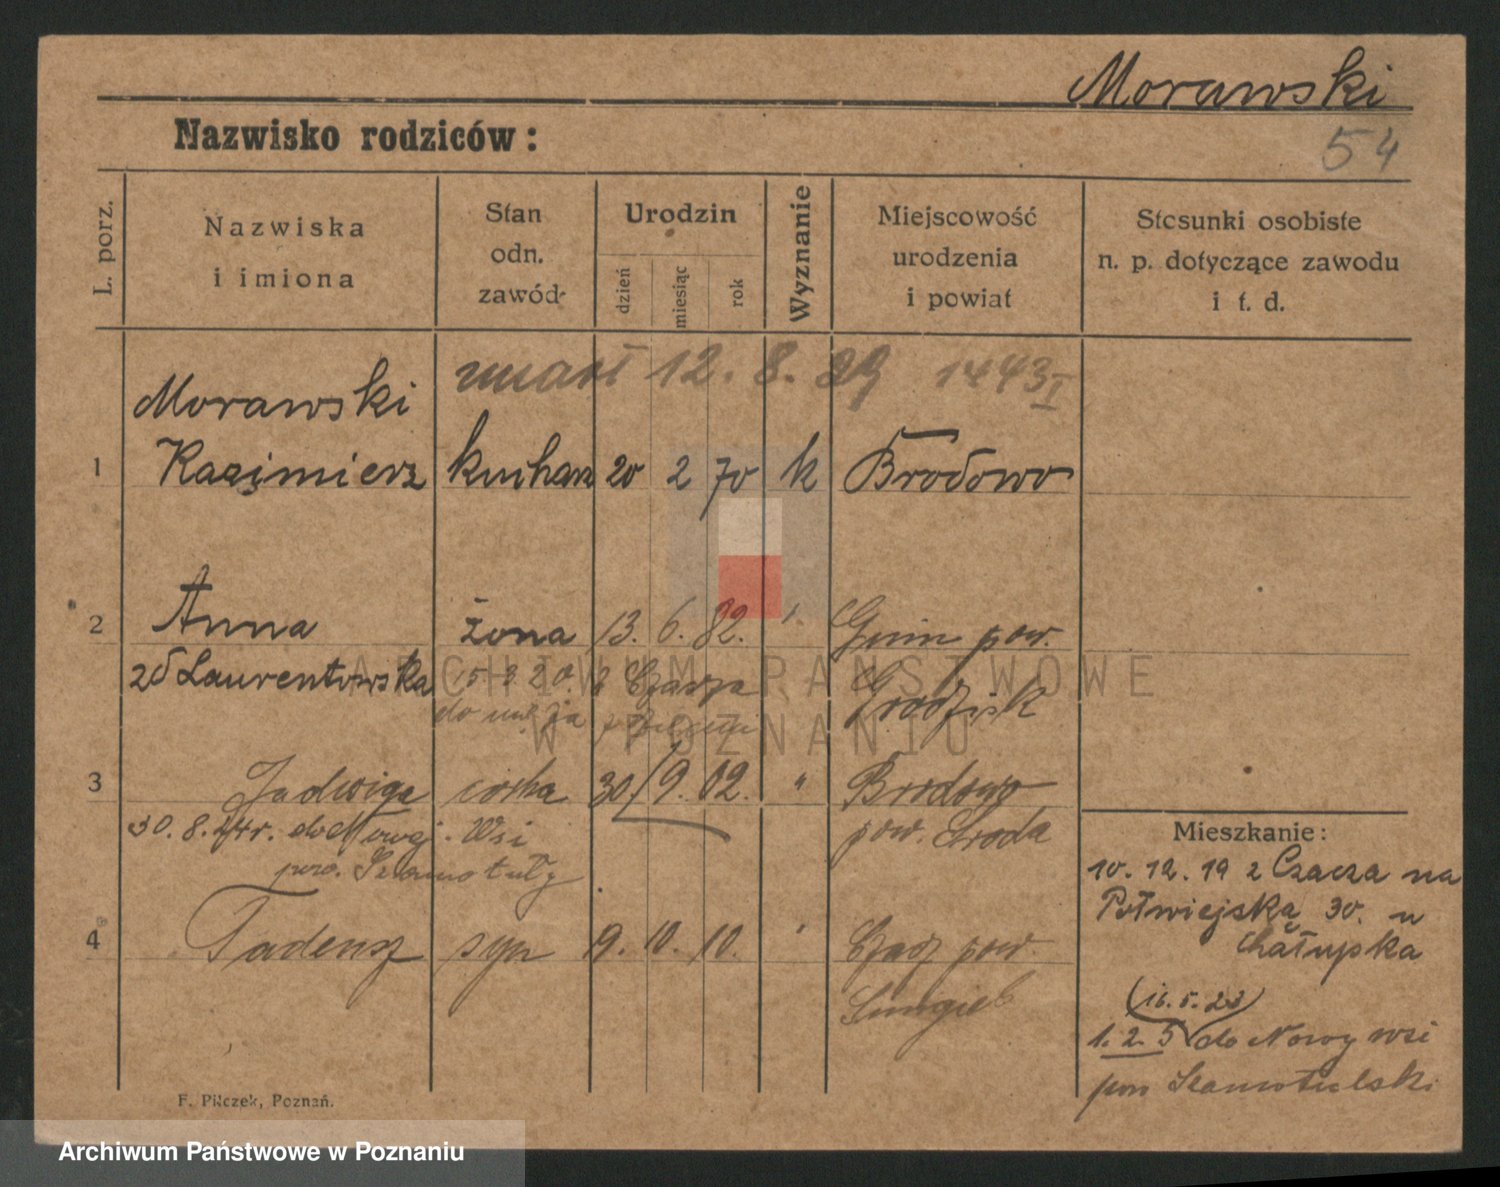 Morawski
Nazwisko rodziców:
54
L. porz.
Nazwiska
i imiona
Stan
odn.
zawód
Urodzin
dzień
miesiąc
rok
Wyznanie
Miejscowość
urodzenia
i powiat
Stosunki osobiste
n. p. dotyczące zawodu
i t. d.
umarł 12. 8. 1443 I
Morawski
1 Kazimierz kucharz 20 2 70 k Brodowo
2 Anna żona 13. 6. 82. Gnin pow.
zd Laurentowska 15 3 20. z Czacza Grodzisk
do
3 Jadwiga córka 30/9. 02. " Brodowo
30. 8. 24 r. do Nowej Wsi pow. Środa
pow. Szamotuły
4 Tadeusz syn 9. 10. 10. Czacz pow.
Śmigiel
Mieszkanie:
10. 12. 19 z Czacza na
Półwiejską 30. u
Chałupska
(16. 5. 23)
1. 2. 5 do Nowej wsi
pow Szamotulski
F. Pilczek, Poznań.
ARCHIWUM PAŃSTWOWE
W POZNANIU
Archiwum Państwowe w Poznaniu